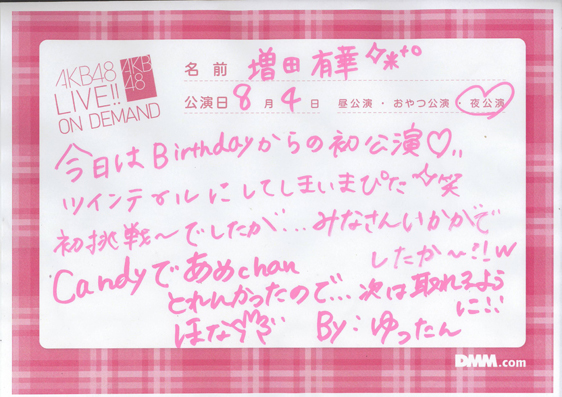 AKB48
LIVE!!
ON DEMAND
AKB
48
名前 増田有華
公演日 8月4日 昼公演・おやつ公演・夜公演
今日はBirthdayからの初公演♡!!
ツインテールにしてしまいまぴた 笑
初挑戦〜でしたが...みなさんいかがで
したか〜!!w
Candyであめchan
とれんかったので...次は取れるよう
に!!
ほな
By:ゆったん
DMM.com